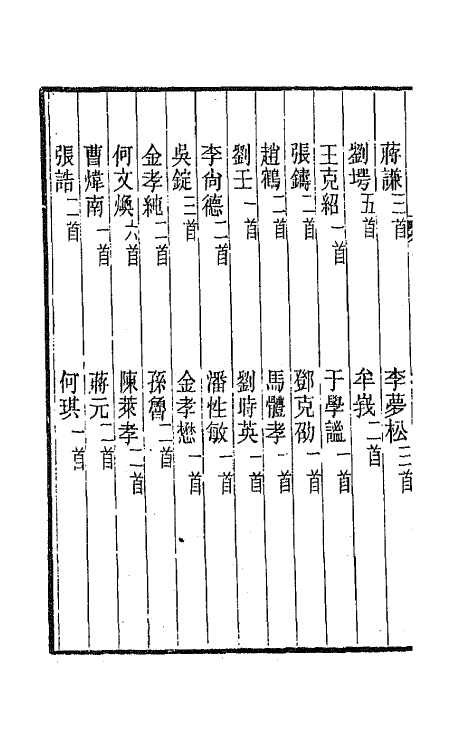 蔣謙三首　李夢松三首
劉堮五首　牟峩二首
王克紹一首　于學謐一首
張鑄二首　鄧克劭一首
趙鶴二首　馬體孝一首
劉壬一首　劉時英一首
李尙德二首　潘性敏一首
吳錠三首　金孝懋一首
金孝純二首　孫魯二首
何文煥六首　陳萊孝二首
曹煒南一首　蔣元二首
張誥二首　何琪一首